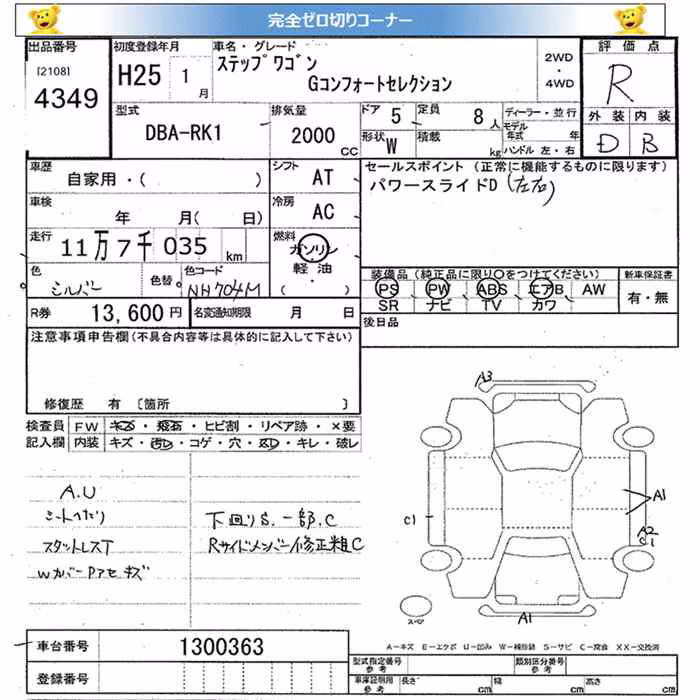 完全ゼロ切りコーナー
出品番号
[2108]
4349
初度登録年月
H25 1月
車名・グレード
ステップワゴン
Gコンフォートセレクション
2WD
・
4WD
評価点
R
外装 内装
D B
型式
DBA-RK1
排気量
2000 CC
ドア 5
定員 8人
形状 W
積載 kg
ディーラー・並行
モデル年式 年
ハンドル 左・右
車歴
自家用・( )
シフト AT
車検
年 月( 日)
冷房 AC
走行
11万7千035 km
燃料
ガソリン
軽油
( )
色
シルバー
色替
色コード
NH704M
R券 13,600円
名変通知期限 月 日
セールスポイント (正常に機能するものに限ります)
パワースライドD(左右)
装備品(純正品に限り○をつけてください)
PS PW ABS エアB AW
SR ナビ TV カワ
新車保証書
有・無
後日品
注意事項申告欄(不具合内容等は具体的に記入して下さい)
修復歴 有 〔箇所 〕
検査員 FW キズ・飛石・ヒビ割・リペア跡・×要
記入欄 内装 キズ・汚レ・コゲ・穴・凹レ・キレ・破レ
A.U
シートへたり
スタットレスT
WカバーPアセキズ
下回りS.一部.C
Rサイドメンバー修正粗C
A3
A1
A2
C1
C1
A1
スペア
A=キズ E=エクボ U=凹み W=補修跡 S=サビ C=腐食 XX=交換済
車台番号 1300363
登録番号
型式指定番号 参考
類別区分番号 参考
車庫証明用 参考
長さ cm
幅 cm
高さ cm